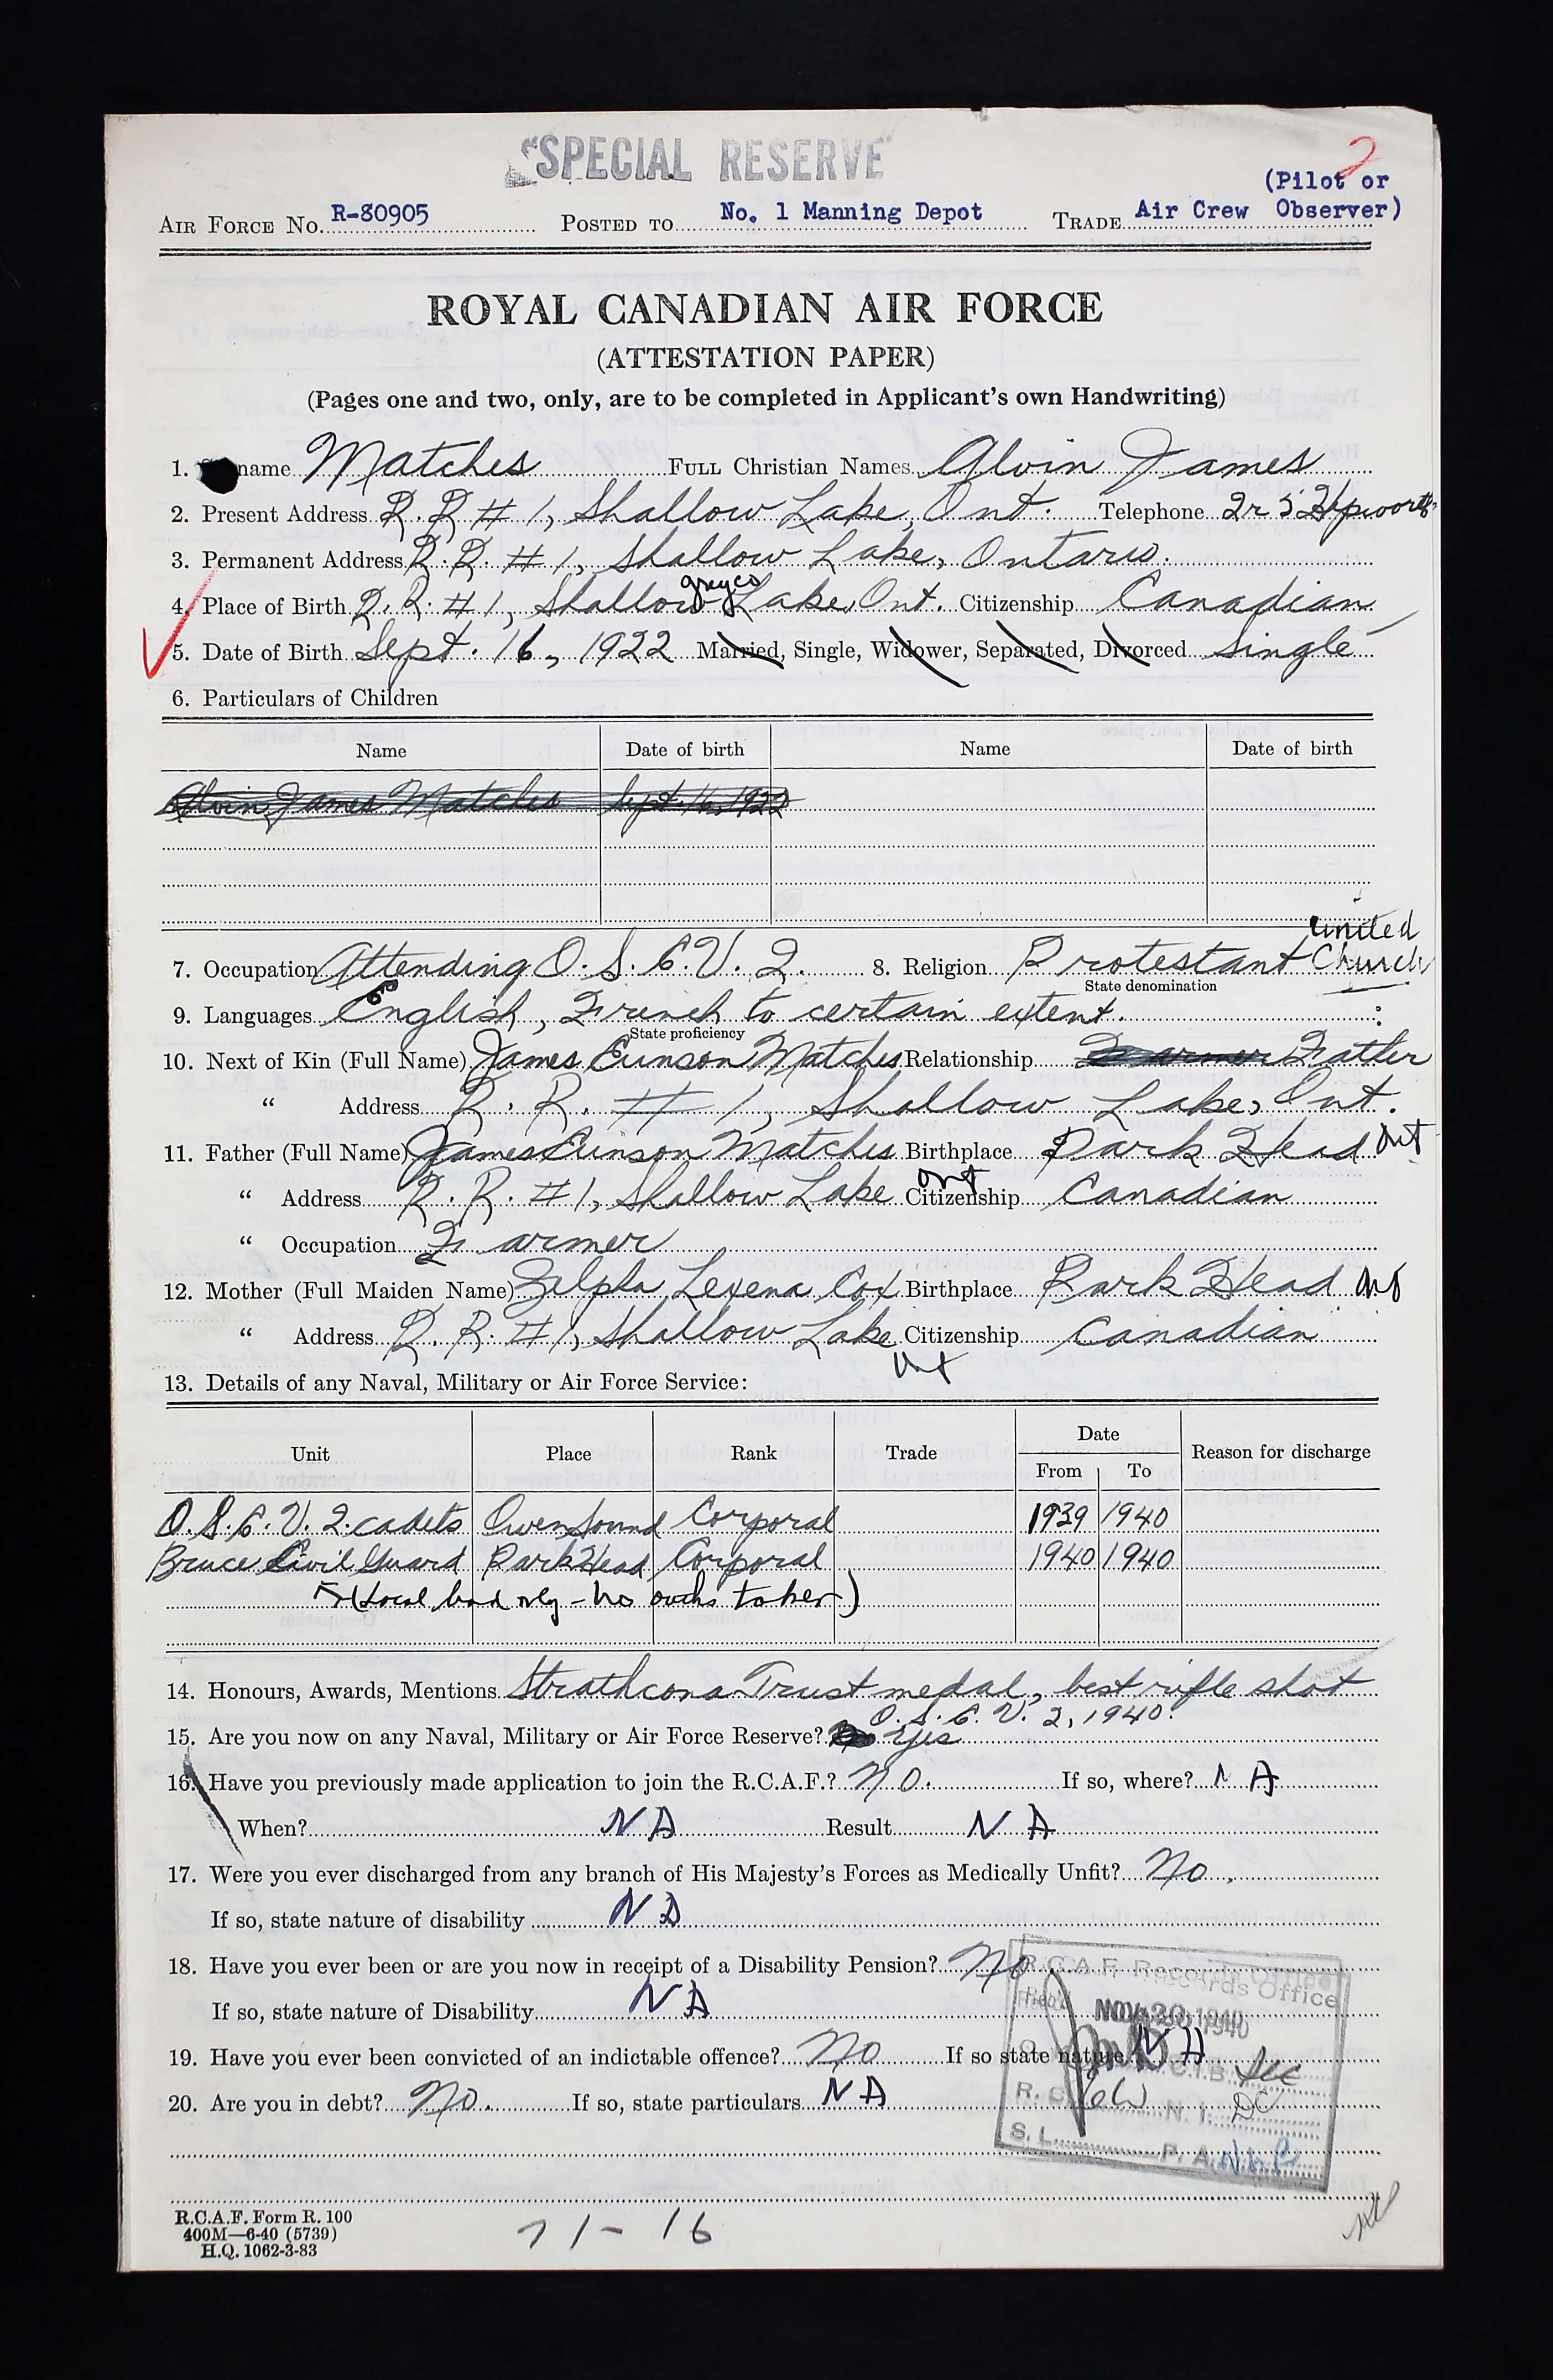 "SPECIAL RESERVE"
2
(Pilot or
AIR FORCE NO. R-80905 POSTED TO No. 1 Manning Depot TRADE Air Crew Observer)
ROYAL CANADIAN AIR FORCE
(ATTESTATION PAPER)
(Pages one and two, only, are to be completed in Applicant's own Handwriting)
1. name Matches FULL Christian Names Alvin James
2. Present Address R.R. # 1, Shallow Lake, Ont. Telephone 2r 5 Hepworth
3. Permanent Address R.R. # 1, Shallow Lake, Ontario.
grey co
4. Place of Birth R.R. # 1, Shallow Lake, Ont. Citizenship Canadian
5. Date of Birth Sept. 16, 1922 Married, Single, Widower, Separated, Divorced single
6. Particulars of Children
Name Date of birth Name Date of birth
Alvin James Matches Sept. 16, 1922
United
7. Occupation Attending O.S.C.V.I. 8. Religion Protestant Church
State denomination
9. Languages English, French to certain extent.
State proficiency
10. Next of Kin (Full Name) James Eunson Matches Relationship Farmer Father
" Address R.R. # 1, Shallow Lake, Ont.
11. Father (Full Name) James Eunson Matches Birthplace Park Head Ont
" Address R.R. # 1, Shallow Lake Ont Citizenship Canadian
" Occupation Farmer
12. Mother (Full Maiden Name) Zelpha Lexena Cox Birthplace Park Head Ont
" Address R.R. # 1, Shallow Lake Citizenship Canadian
Ont
13. Details of any Naval, Military or Air Force Service:
Unit Place Rank Trade Date Reason for discharge
From To
O.S.C.V.I. cadets Owen Sound Corporal 1939 1940
Bruce Civil Guard Park Head Corporal 1940 1940
(Local only - no oaths taken)
14. Honours, Awards, Mentions Strathcona Trust medal, best rifle shot
O.S.C.V.I., 1940.
15. Are you now on any Naval, Military or Air Force Reserve? Yes
16. Have you previously made application to join the R.C.A.F.? No. If so, where? N A
When? N A Result N A
17. Were you ever discharged from any branch of His Majesty's Forces as Medically Unfit? No.
If so, state nature of disability N A
18. Have you ever been or are you now in receipt of a Disability Pension? No
If so, state nature of Disability N A
R.C.A.F. Records Office
NOV 20 1940
19. Have you ever been convicted of an indictable offence? No If so state nature N A
C.I.B.
20. Are you in debt? No. If so, state particulars N A
R. N. I. DC
S. L. P. A.
R.C.A.F. Form R. 100
400M—6-40 (5739)
H.Q. 1062-3-83
71-16